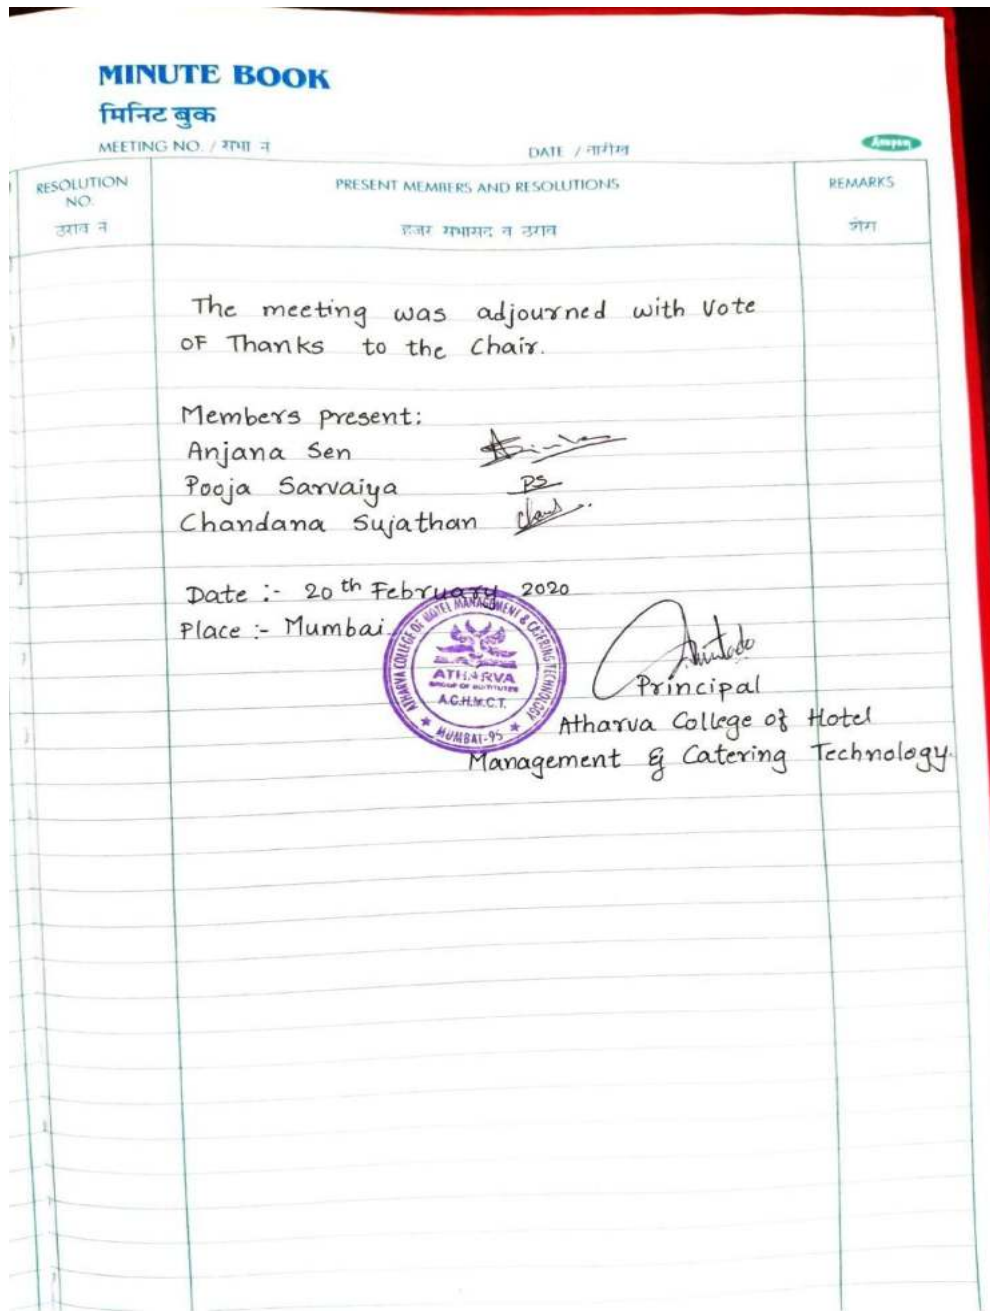 MINUTE BOOK
मिनिट बुक
MEETING NO. / सभा नं
DATE / तारीख
Anupam
RESOLUTION NO.
ठराव नं
PRESENT MEMBERS AND RESOLUTIONS
हजर सभासद व ठराव
REMARKS
शेरा
The meeting was adjourned with Vote
OF Thanks to the Chair.
Members present:
Anjana Sen
Pooja Sarvaiya PS
Chandana Sujathan
Date :- 20th February 2020
Place :- Mumbai
ATHARVA COLLEGE OF HOTEL MANAGEMENT & CATERING TECHNOLOGY
ATHARVA
GROUP OF INSTITUTES
A.C.H.M.C.T.
★ MUMBAI-95 ★
Principal
Atharva College of Hotel
Management & Catering Technology.